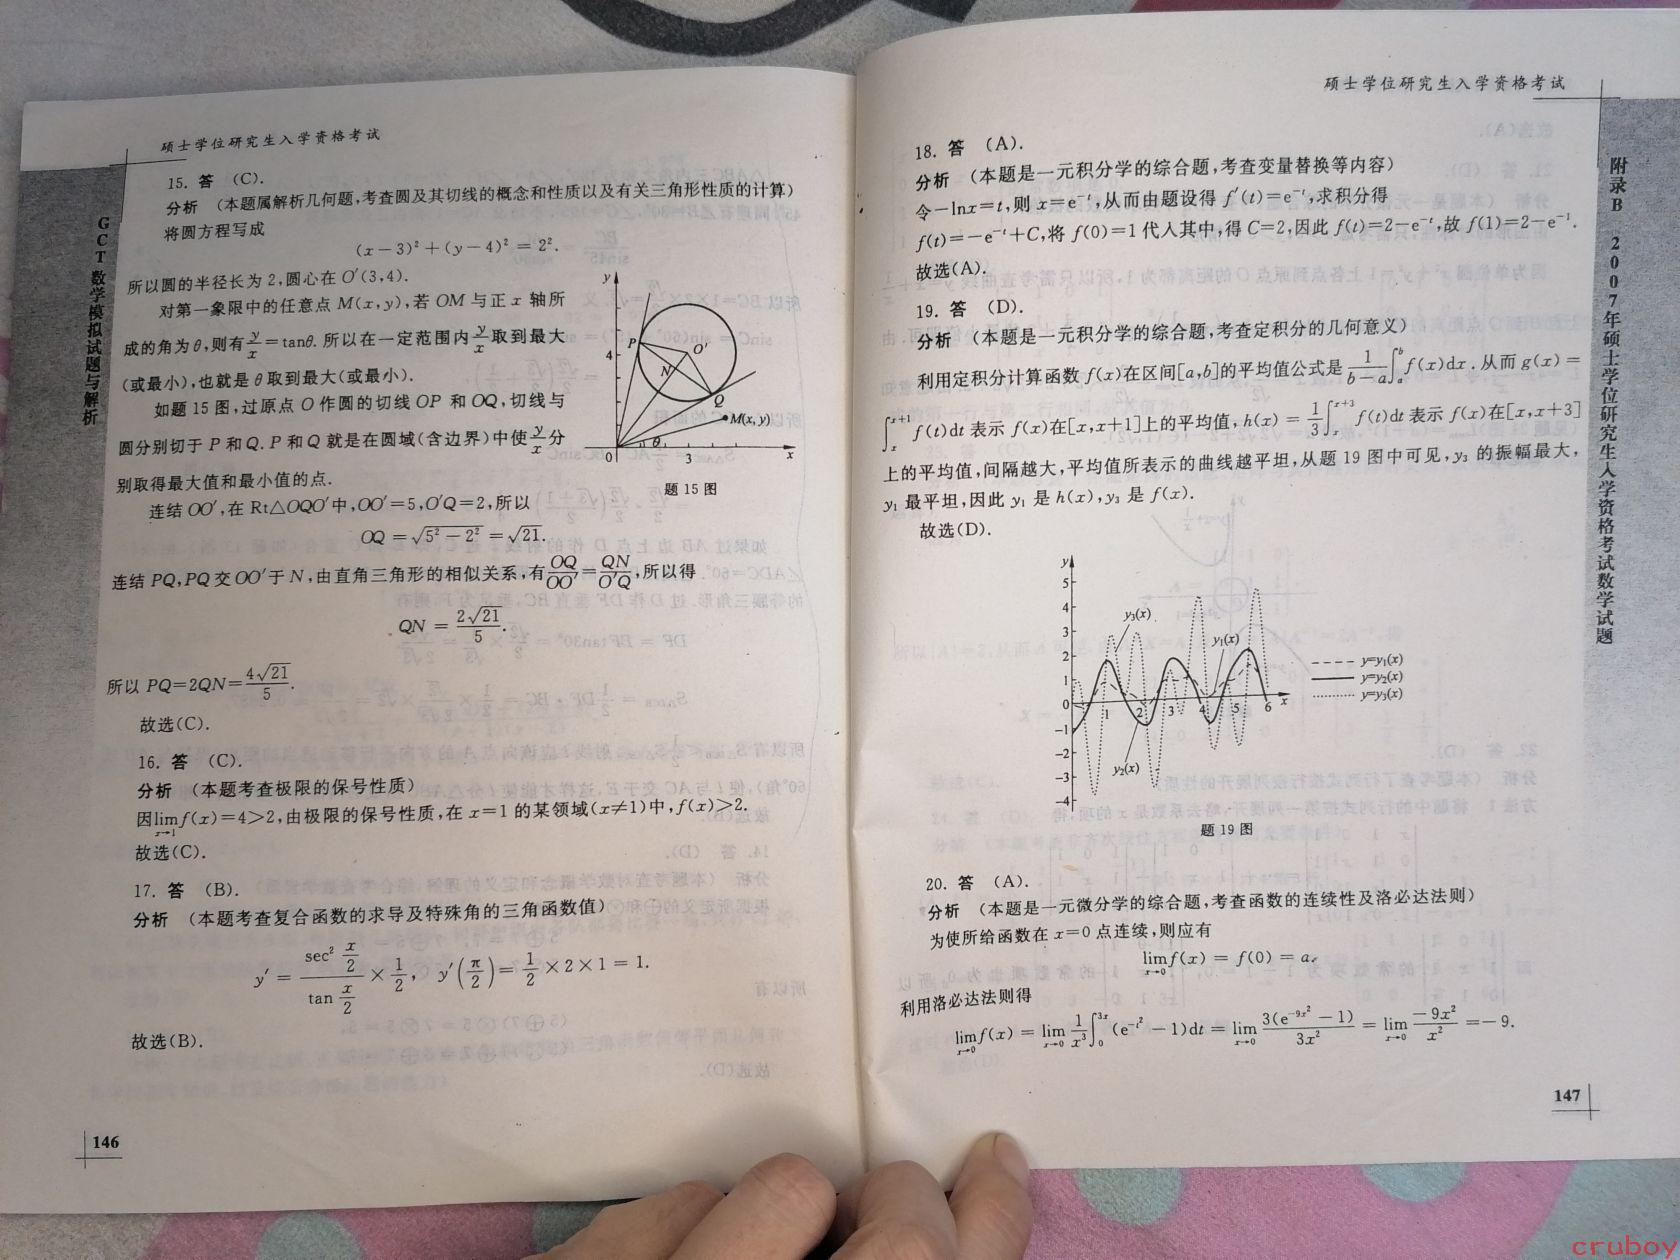 硕士学位研究生入学资格考试
GCT数学模拟试题与解析
15. 答 (C).
分析 (本题属解析几何题,考查圆及其切线的概念和性质以及有关三角形性质的计算)
将圆方程写成
(x−3)²+(y−4)² = 2².
所以圆的半径长为2,圆心在O′(3,4).
对第一象限中的任意点M(x,y),若OM与正x轴所
成的角为θ,则有y/x=tanθ.所以在一定范围内y/x取到最大
(或最小),也就是θ取到最大(或最小).
如题15图,过原点O作圆的切线OP和OQ,切线与
圆分别切于P和Q.P和Q就是在圆域(含边界)中使y/x分
别取得最大值和最小值的点.
y
P
O′
4
N
Q
M(x,y)
θ
0
3
x
题15图
连结OO′,在Rt△OQO′中,OO′=5,O′Q=2,所以
OQ = √(5²−2²) = √21.
连结PQ,PQ交OO′于N,由直角三角形的相似关系,有OQ/OO′=QN/O′Q,所以得
QN = 2√21/5.
所以PQ=2QN=4√21/5.
故选(C).
16. 答 (C).
分析 (本题考查极限的保号性质)
因lim(x→1) f(x)=4>2,由极限的保号性质,在x=1的某领域(x≠1)中,f(x)>2.
故选(C).
17. 答 (B).
分析 (本题考查复合函数的求导及特殊角的三角函数值)
y′ = (sec² x/2)/(tan x/2) × 1/2, y′(π/2) = 1/2 × 2 × 1 = 1.
故选(B).
146
硕士学位研究生入学资格考试
附录B 2007年硕士学位研究生入学资格考试数学试题
18. 答 (A).
分析 (本题是一元积分学的综合题,考查变量替换等内容)
令−lnx=t,则x=e⁻ᵗ,从而由题设得f′(t)=e⁻ᵗ,求积分得
f(t)=−e⁻ᵗ+C,将f(0)=1代入其中,得C=2,因此f(t)=2−e⁻ᵗ,故f(1)=2−e⁻¹.
故选(A).
19. 答 (D).
分析 (本题是一元积分学的综合题,考查定积分的几何意义)
利用定积分计算函数f(x)在区间[a,b]的平均值公式是 1/(b−a)∫ₐᵇ f(x)dx.从而g(x)=
∫ₓˣ⁺¹ f(t)dt表示f(x)在[x,x+1]上的平均值,h(x) = 1/3∫ₓˣ⁺³ f(t)dt表示f(x)在[x,x+3]
上的平均值,间隔越大,平均值所表示的曲线越平坦,从题19图中可见,y₃的振幅最大,
y₁最平坦,因此y₁是h(x),y₃是f(x).
故选(D).
y
5
4
3
2
1
0
−1
−2
−3
−4
1
2
3
4
5
6
x
y₃(x)
y₁(x)
y₂(x)
y=y₁(x)
y=y₂(x)
y=y₃(x)
题19图
20. 答 (A).
分析 (本题是一元微分学的综合题,考查函数的连续性及洛必达法则)
为使所给函数在x=0点连续,则应有
lim(x→0) f(x) = f(0) = a.
利用洛必达法则得
lim(x→0) f(x) = lim(x→0) 1/x³ ∫₀³ˣ (e^(−t²) − 1)dt = lim(x→0) 3(e^(−9x²) − 1)/3x² = lim(x→0) −9x²/x² = −9.
147
cruboy